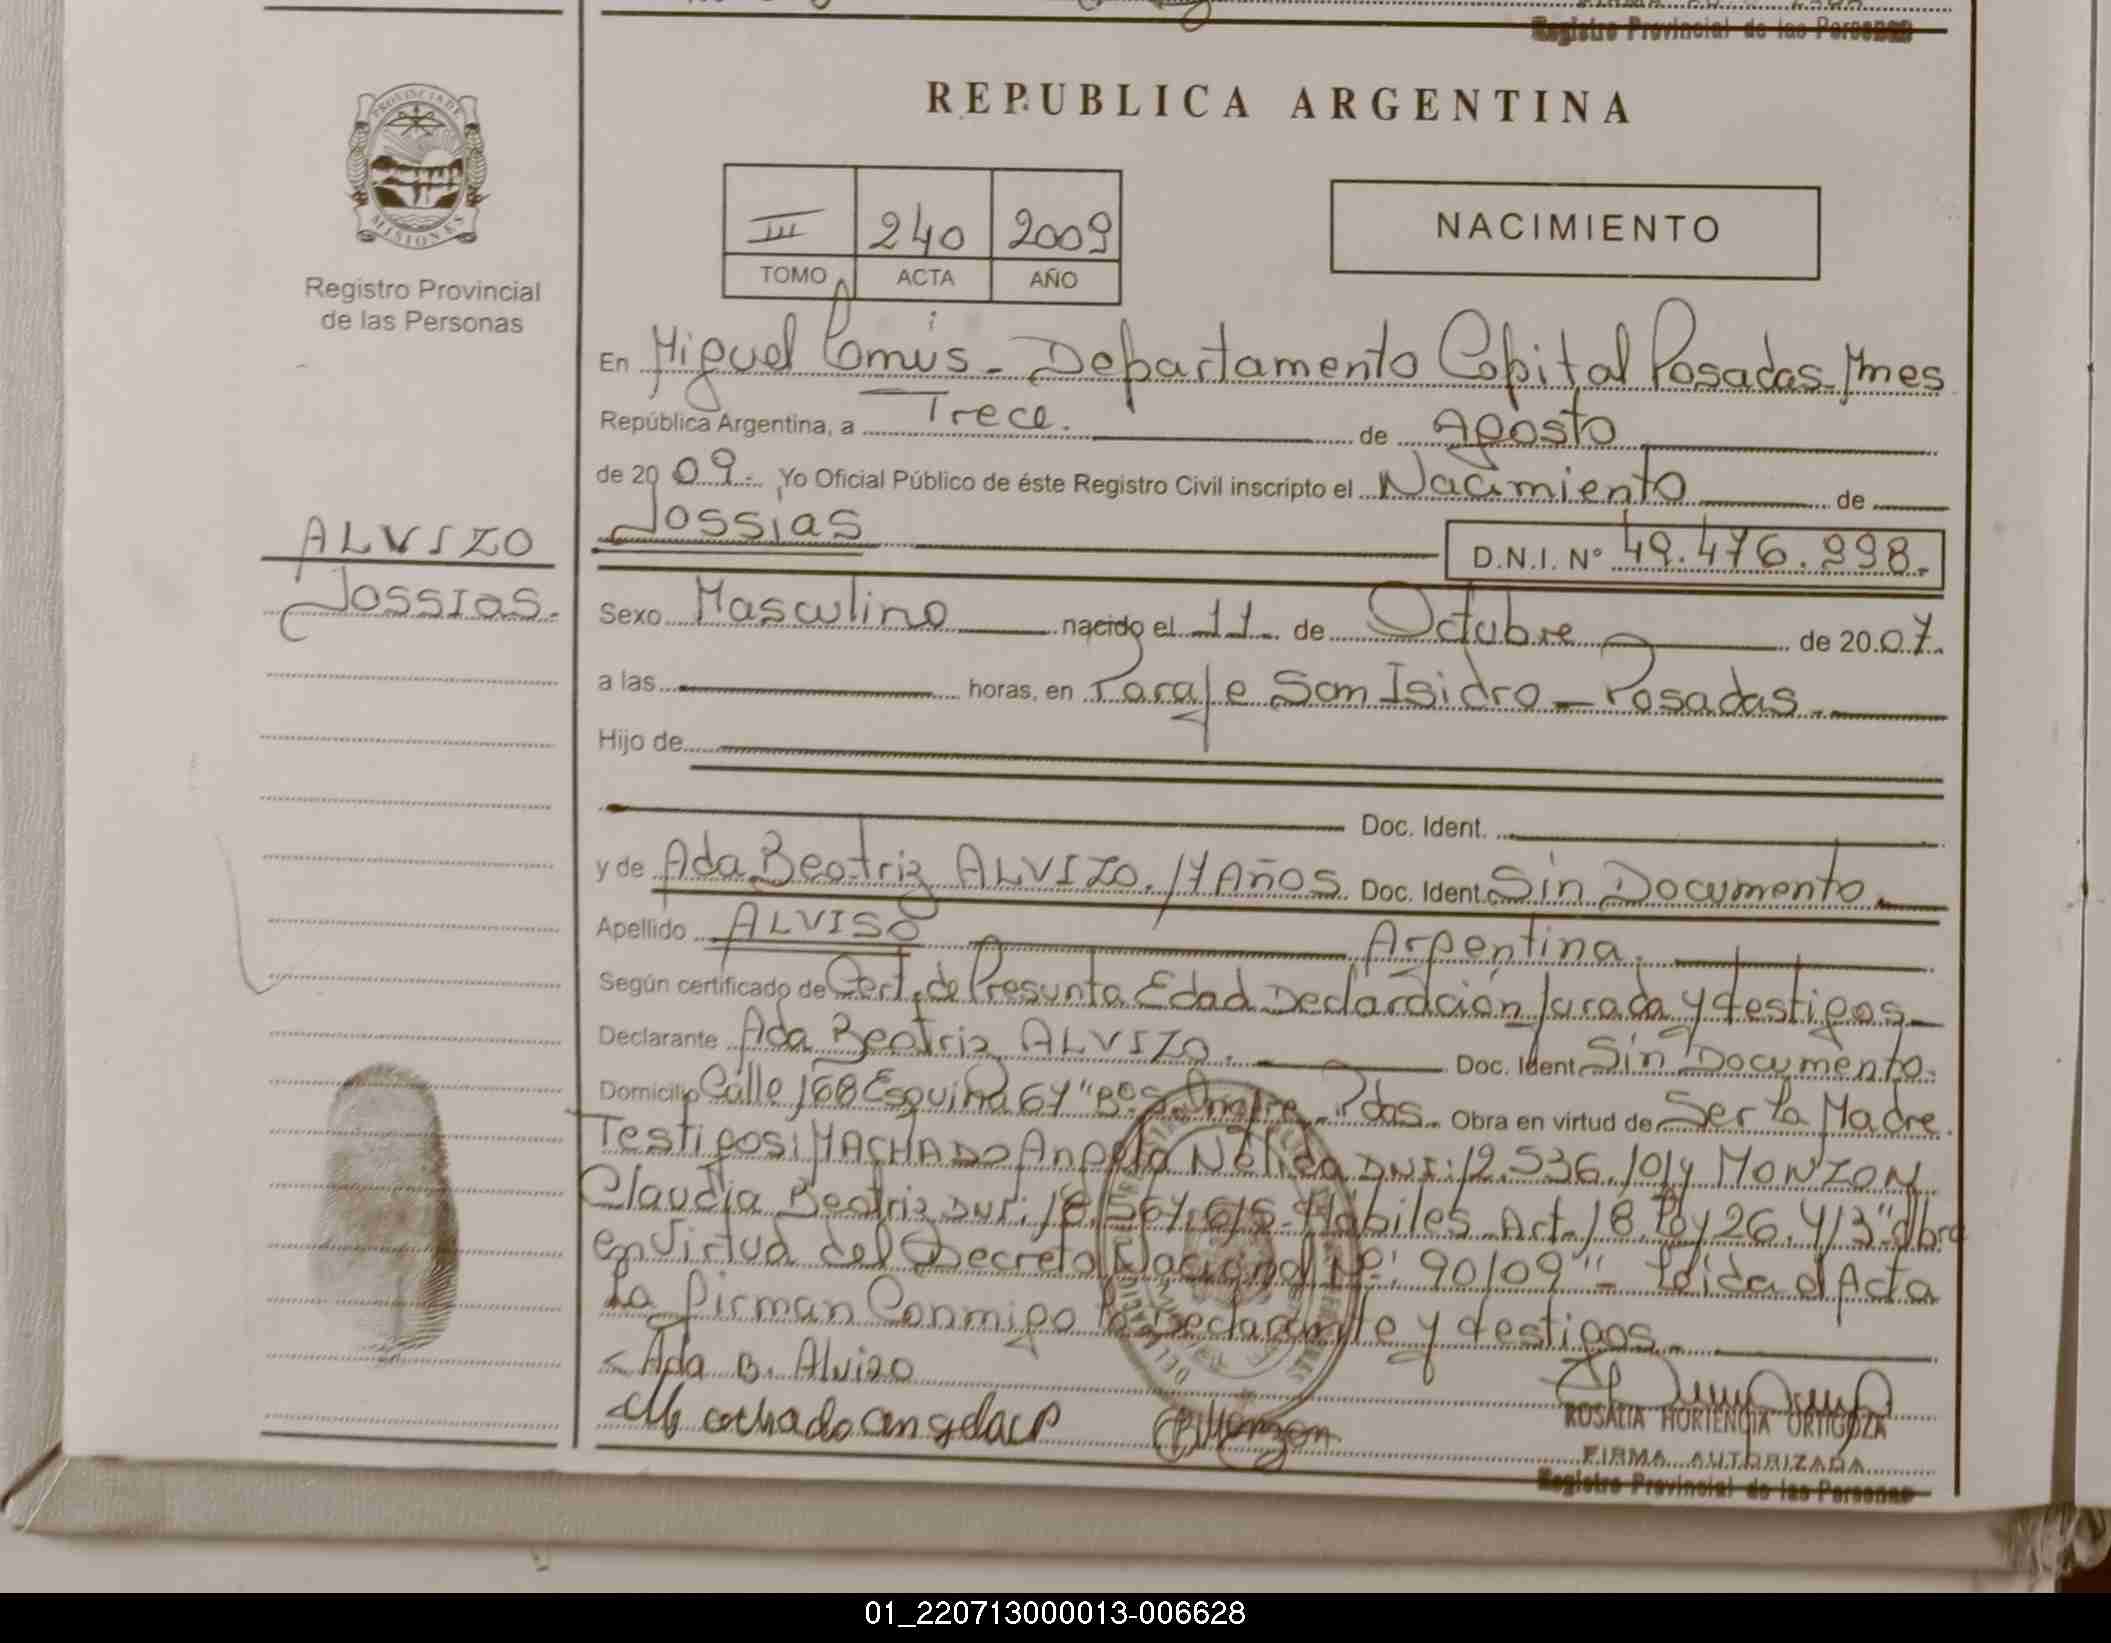 Registro Provincial de las Personas
PROVINCIA DE
MISIONES
Registro Provincial
de las Personas
REPUBLICA ARGENTINA
III 240 2009
TOMO ACTA AÑO
NACIMIENTO
En Miguel Lanus - Departamento Capital Posadas Mnes
República Argentina, a Trece. de Agosto
de 2009. Yo Oficial Público de éste Registro Civil inscripto el Nacimiento de
ALVIZO
Jossias.
Jossias
D.N.I. Nº 49.476.998.
Sexo Masculino nacido el 11 de Octubre de 2007.
a las horas, en Paraje San Isidro - Posadas.
Hijo de
Doc. Ident.
y de Ada Beatriz ALVIZO. 17 Años. Doc. Ident. Sin Documento.
Apellido ALVISO Argentina.
Según certificado de Cert. de Presunta Edad Declaración Jurada y testigos
Declarante Ada Beatriz ALVIZO. Doc. Ident. Sin Documento.
Domicilio Calle 168 Esquina 64 "Bº S. Onofre Pdas. Obra en virtud de Ser la Madre.
Testigos: MACHADO Angela Nelida DNI: 12.536.1014 MONZON
Claudia Beatriz DNI: 18.567.615 - Hábiles - Art. 18 Ley 26.413 "Obra
en virtud del Decreto Nacional Nº: 90/09" - Leida el Acta
La firman Conmigo la Declarante y testigos.
Ada B. Alvizo
Machado angela
Monzon
ROSALIA HORTENCIA ORTIGOZA
FIRMA AUTORIZADA
Registro Provincial de las Personas
01_220713000013-006628